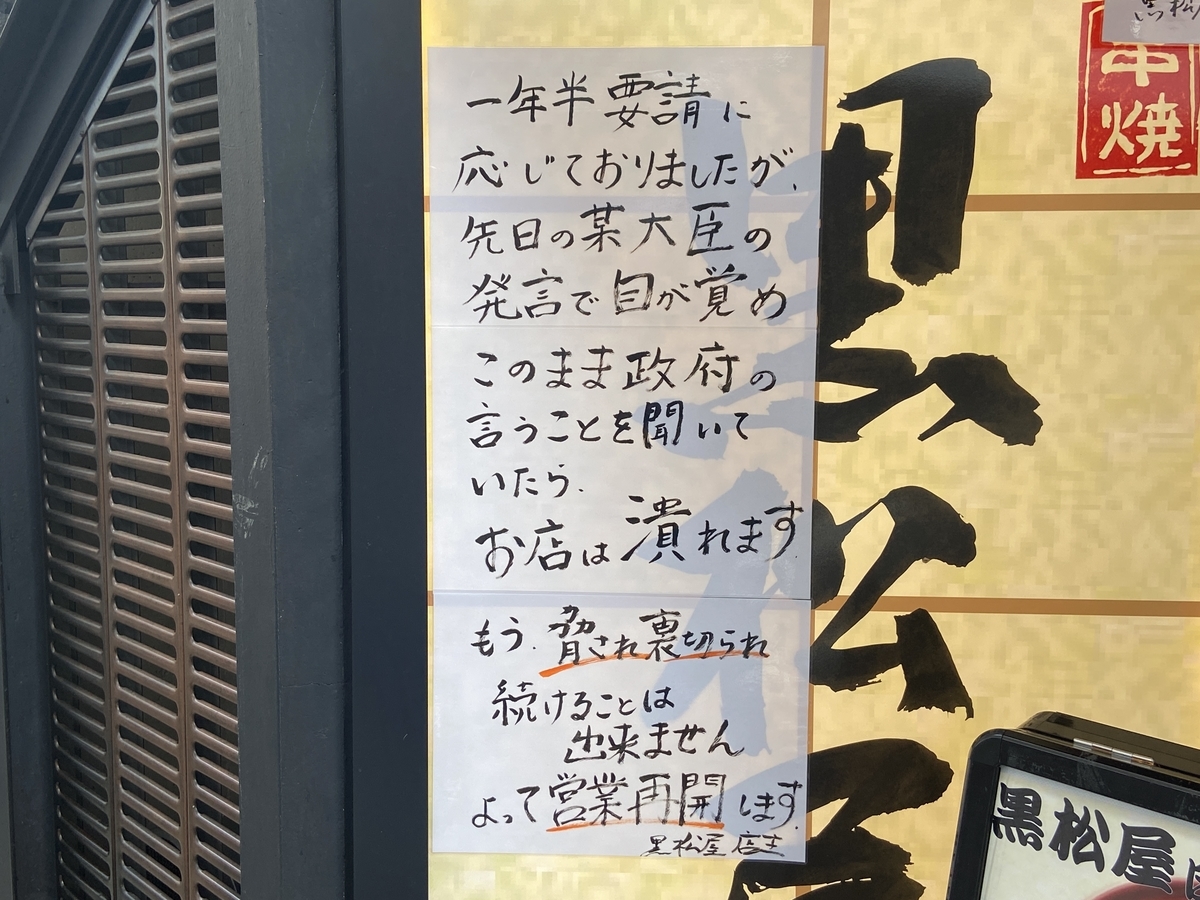 一年半要請に
応じておりましたが、
先日の某大臣の
発言で目が覚め
このまま政府の
言うことを聞いて
いたら、
お店は潰れます
もう、脅され裏切られ
続けることは
出来ません
よって営業再開します。
黒松屋 店主
黒松屋
串焼
黒松
黒松屋